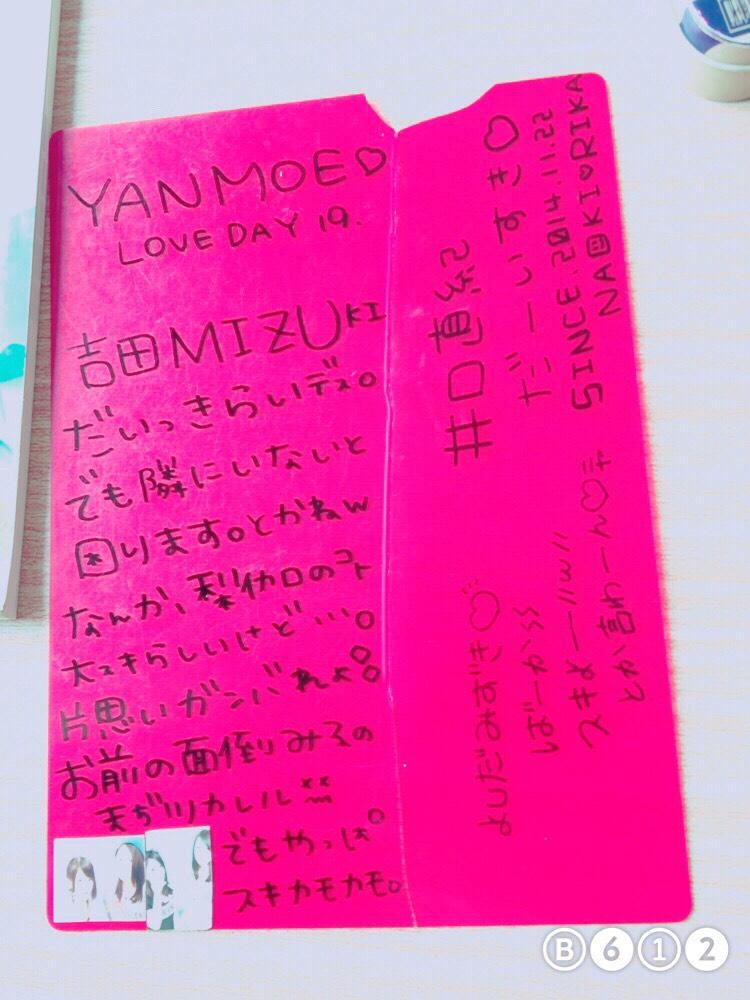 YANMOE♡
LOVE DAY 19.
吉田MIZUKI
だいっきらいデス。
でも隣にいないと
困ります。とかねw
なんか、梨伽のコト
大スキらしいけど…。
片思いガンバれよ。
お前の面倒みるの
まぢツカレル
でもやっぱ
スキカモカモ。
井口直紀
だーいすき♡
SINCE.2014.11.22
NAOKI♡RIKA
よしだみずき♡
ばーか
スキよー//w//
とか言わーん♡
B612